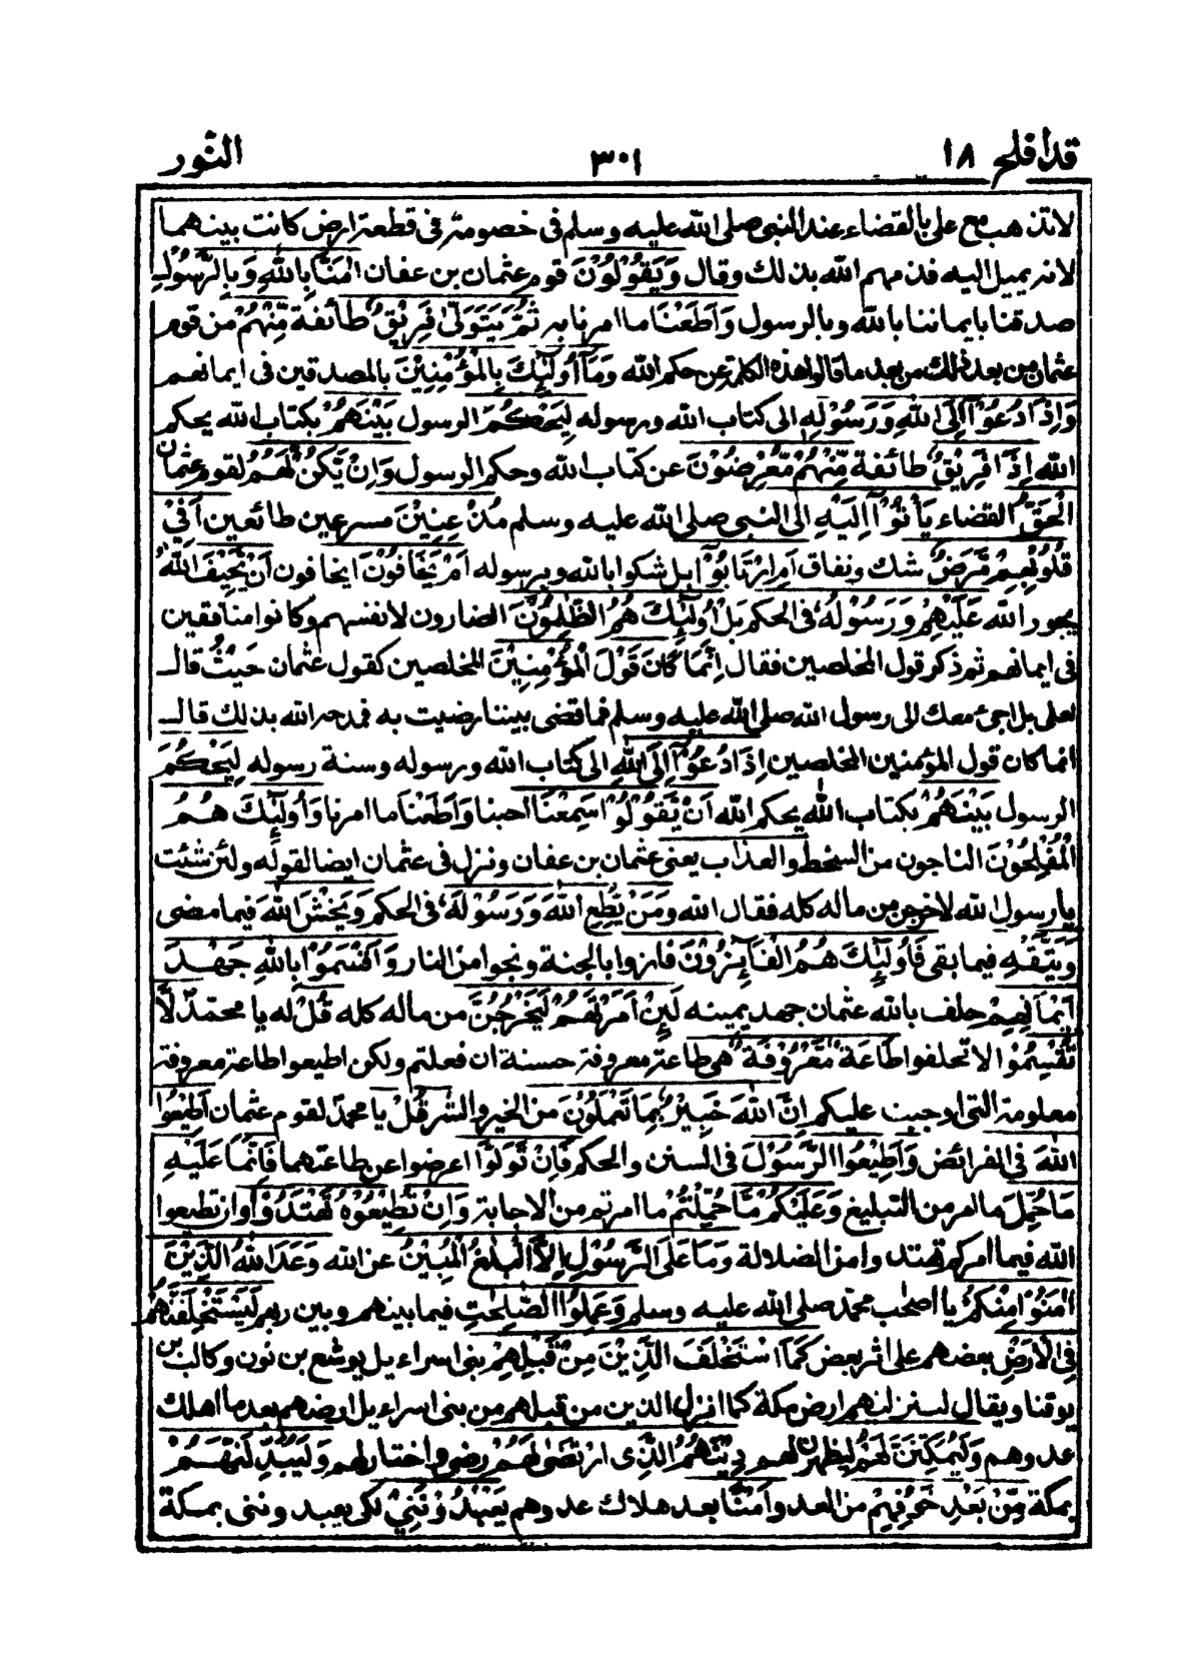 قد افلح ١٨ ٣٠١ النّور
لا تذهب مع على بالقضاء عند النبى صلى الله عليه وسلم فى خصومة فى قطعة ارض كانت بينهما
لانه يميل اليه فذمهم الله بذلك وقال وَيَقُوْلُوْنَ قوم عثمان بن عفان اٰمَنَّا بِاللهِ وَبِالرَّسُوْلِ
صدقنا بايماننا بالله وبالرسول وَاَطَعْنَا ما امرنا به ثُمَّ يَتَوَلّٰى فَرِيْقٌ طائفة مِّنْهُمْ من قوم
عثمان مِن بعد ذٰلك من بعد ما قالوا هذه الكلمة عن حكم الله وَمَآ اُولٰٓئِكَ بِالْمُؤْمِنِيْنَ بالمصدقين فى ايمانهم
وَاِذَا دُعُوْٓا اِلَى اللهِ وَرَسُوْلِهٖ الى كتاب الله ورسوله لِيَحْكُمَ الرسول بَيْنَهُمْ بكتاب الله يحكم
الله اِذَا فَرِيْقٌ طائفة مِّنْهُمْ مُّعْرِضُوْنَ عن كتاب الله وحكم الرسول وَاِنْ يَّكُنْ لَّهُمُ لقوم عثمان
الْحَقُّ القضاء يَأْتُوْٓا اِلَيْهِ الى النبى صلى الله عليه وسلم مُذْعِنِيْنَ مسرعين طائعين اَفِيْ
قُلُوْبِهِمْ مَّرَضٌ شك ونفاق اَمِ ارْتَابُوْٓا بل شكوا بالله وبرسوله اَمْ يَخَافُوْنَ ايخافون اَنْ يَّحِيْفَ اللهُ
يجور الله عَلَيْهِمْ وَرَسُوْلُهٗ فى الحكم بَلْ اُولٰٓئِكَ هُمُ الظّٰلِمُوْنَ الضارون لانفسهم وكانوا منافقين
فى ايمانهم ثم ذكر قول المخلصين فقال اِنَّمَا كَانَ قَوْلَ الْمُؤْمِنِيْنَ المخلصين كقول عثمان حَيْثُ قال
لعلى بل اجئ معك الى رسول الله صلى الله عليه وسلم فما قضى بيننا رضيت به فمدحه الله بذلك قال
انما كان قول المؤمنين المخلصين اِذَا دُعُوْٓا اِلَى اللهِ الى كتاب الله ورسوله وسنة رسوله لِيَحْكُمَ
الرسول بَيْنَهُمْ بكتاب الله يحكم الله اَنْ يَّقُوْلُوْا سَمِعْنَا اجبنا وَاَطَعْنَا ما امرنا وَاُولٰٓئِكَ هُمُ
الْمُفْلِحُوْنَ الناجون من السخط والعذاب يعنى عثمان بن عفان ونزل فى عثمان ايضا لقوله ولئن شئت
يا رسول الله لاخرجن من ماله كله فقال الله وَمَنْ يُّطِعِ اللهَ وَرَسُوْلَهٗ فى الحكم وَيَخْشَ اللهَ فيما مضى
وَيَتَّقْهِ فيما بقى فَاُولٰٓئِكَ هُمُ الْفَآئِزُوْنَ فازوا بالجنة ونجوا من النار وَاَقْسَمُوْا بِاللهِ جَهْدَ
اَيْمَانِهِمْ حلف بالله عثمان جهد يمينه لَئِنْ اَمَرْتَهُمْ لَيَخْرُجُنَّ من ماله كله قُلْ له يا محمّد لَّا
تُقْسِمُوْا لا تحلفوا طَاعَةٌ مَّعْرُوْفَةٌ هى طاعة معروفة حسنة ان فعلتم ولكن اطيعوا طاعة معروفة
معلومة التى اوجبت عليكم اِنَّ اللهَ خَبِيْرٌۢ بِمَا تَعْمَلُوْنَ من الخير والشر قُلْ يا محمدّ لقوم عثمان اَطِيْعُوا
اللهَ فى الفرائض وَاَطِيْعُوا الرَّسُوْلَ فى السنن والحكم فَاِنْ تَوَلَّوْا اعرضوا عن طاعتهما فَاِنَّمَا عَلَيْهِ
مَا حُمِّلَ ما امر من التبليغ وَعَلَيْكُمْ مَّا حُمِّلْتُمْ ما امرتم من الاجابة وَاِنْ تُطِيْعُوْهُ تَهْتَدُوْا وان تطيعوا
الله فيما امركم تهتدوا من الضلالة وَمَا عَلَى الرَّسُوْلِ اِلَّا الْبَلٰغُ الْمُبِيْنُ عن الله وَعَدَ اللهُ الَّذِيْنَ
اٰمَنُوْا مِنْكُمْ يا اصحٰب محمّد صلى الله عليه وسلم وَعَمِلُوا الصّٰلِحٰتِ فيما بينهم وبين ربهم لَيَسْتَخْلِفَنَّهُمْ
فِى الْاَرْضِ بعضهم على اثر بعض كَمَا اسْتَخْلَفَ الَّذِيْنَ مِنْ قَبْلِهِمْ بنى اسراءيل يوشع بن نون وكالب بن
يوقنا ويقال لننزلنهم ارض مكة كما انزل الذين من قبلهم من بنى اسراءيل ارضهم بعد ما اهلك
عدوهم وَلَيُمَكِّنَنَّ لَهُمْ ليظهرن لهم دِيْنَهُمُ الَّذِى ارْتَضٰى لَهُمْ رضى واختار لهم وَلَيُبَدِّلَنَّهُمْ
بمكة مِّنْۢ بَعْدِ خَوْفِهِمْ من العدو اَمْنًا بعد هلاك عدوهم يَعْبُدُوْنَنِيْ لكى يعبدوننى بمكة